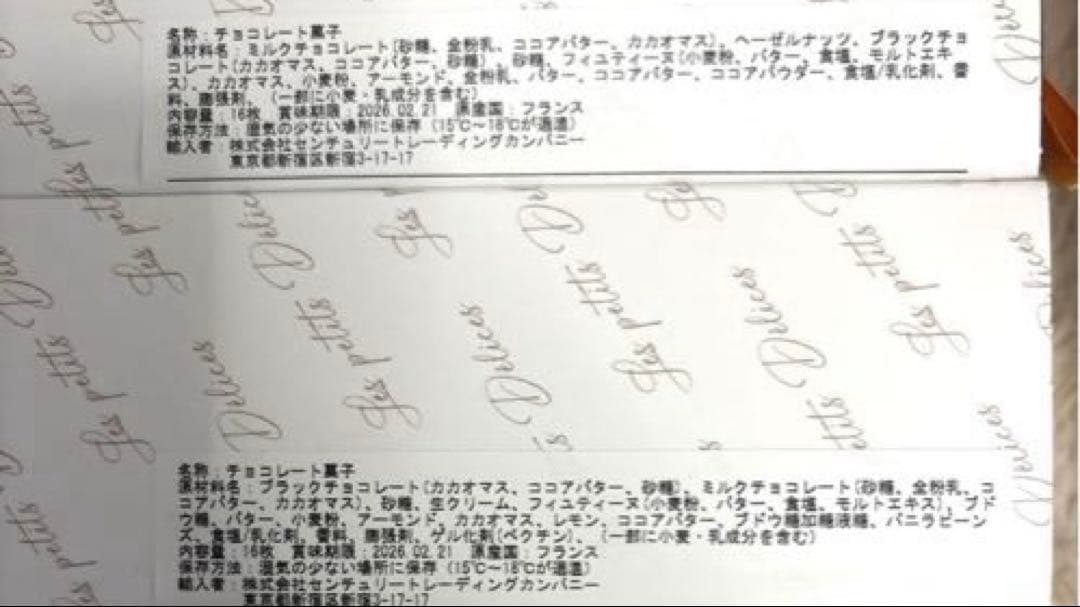 名称：チョコレート菓子
原材料名：ミルクチョコレート(砂糖、全粉乳、ココアバター、カカオマス)、ヘーゼルナッツ、ブラックチョ
コレート(カカオマス、ココアバター、砂糖)、砂糖、フィユティーヌ(小麦粉、バター、食塩、モルトエキ
ス)、カカオマス、小麦粉、アーモンド、全粉乳、バター、ココアバター、ココアパウダー、食塩/乳化剤、香
料、膨張剤、(一部に小麦・乳成分を含む)
内容量：16枚 賞味期限：2026.02.21 原産国：フランス
保存方法：湿気の少ない場所に保存 (15℃～18℃が適温)
輸入者：株式会社センチュリートレーディングカンパニー
東京都新宿区新宿3-17-17
Les petits Delices
Les petits Delices
Les petits Delices
Les petits Delices
名称：チョコレート菓子
原材料名：ブラックチョコレート(カカオマス、ココアバター、砂糖)、ミルクチョコレート(砂糖、全粉乳、コ
コアバター、カカオマス)、砂糖、生クリーム、フィユティーヌ(小麦粉、バター、食塩、モルトエキス)、ブド
ウ糖、バター、小麦粉、アーモンド、カカオマス、レモン、ココアバター、ブドウ糖加糖液糖、バニラビーン
ズ、食塩/乳化剤、香料、膨張剤、ゲル化剤(ペクチン)、(一部に小麦・乳成分を含む)
内容量：16枚 賞味期限：2026.02.21 原産国：フランス
保存方法：湿気の少ない場所に保存 (15℃～18℃が適温)
輸入者：株式会社センチュリートレーディングカンパニー
東京都新宿区新宿3-17-17